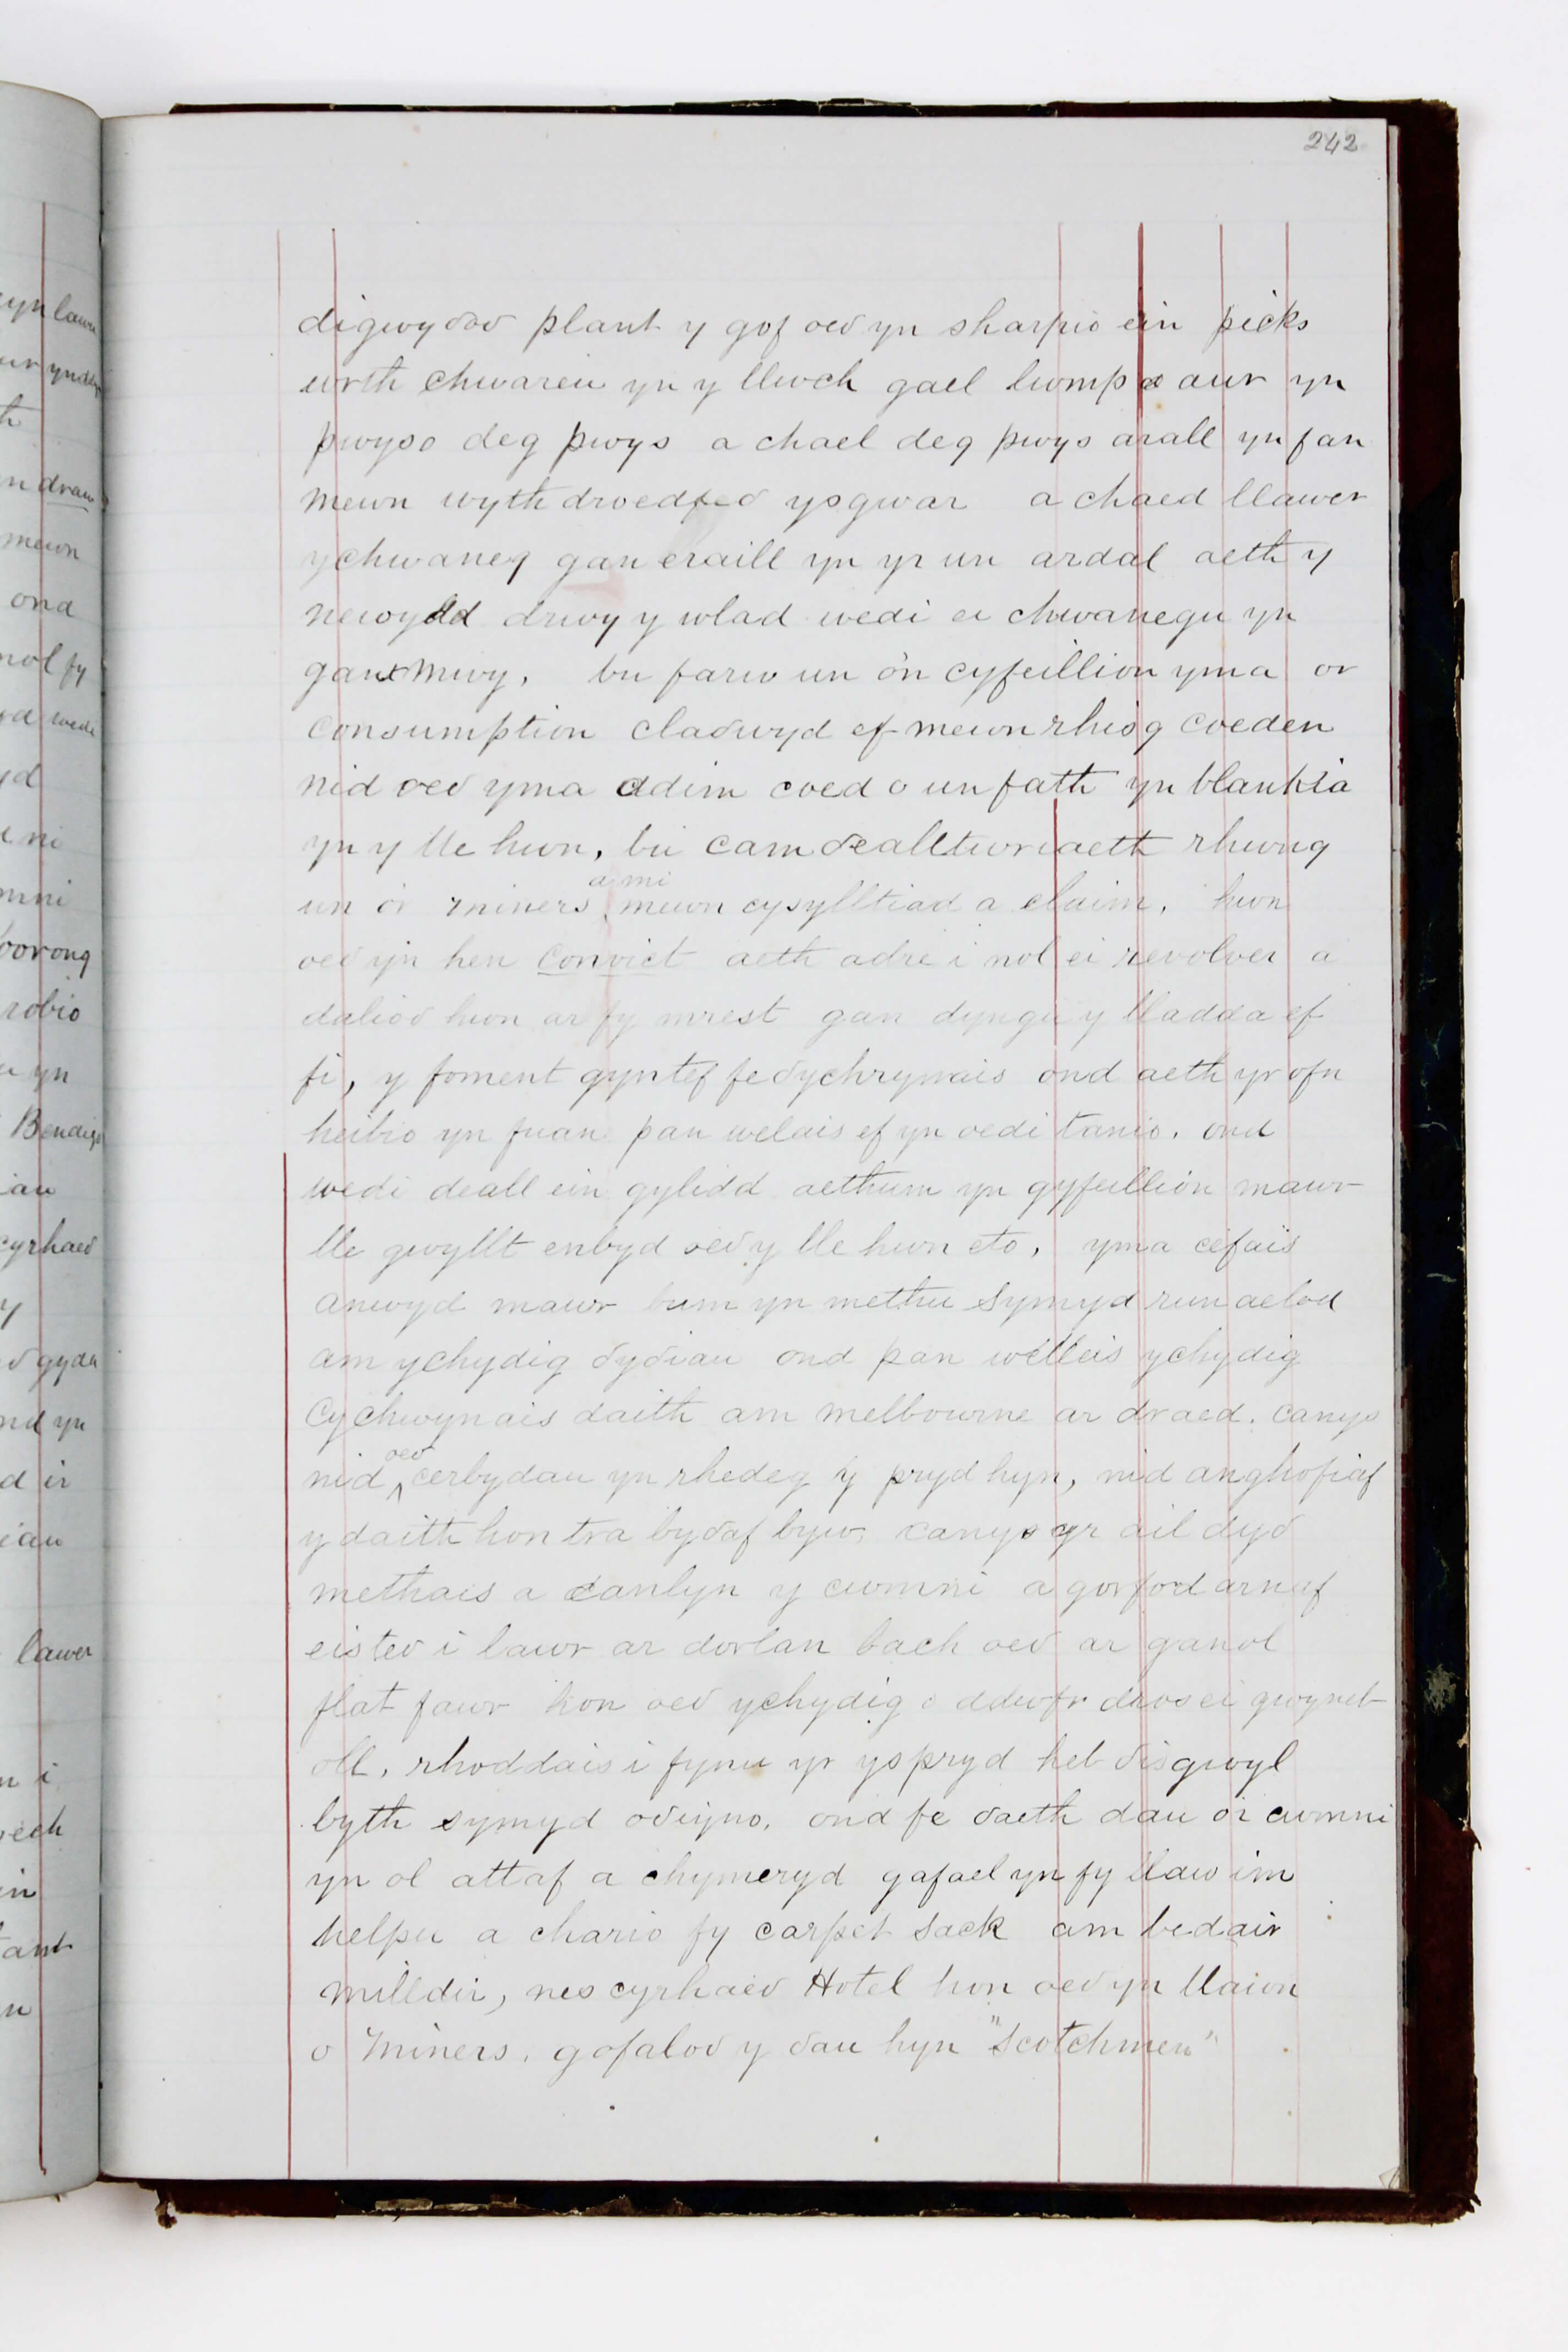 242
digwyddod plant y gof oed yn sharpio ein picks
wrth chwareu yn y llwch gael lwmp o aur yn
pwyso deg pwys a chael deg pwys arall yn fan
mewn wyth droedfed ysgwar a chaed llawer
ychwaneg gan eraill yn yr un ardal aeth y
newydd drwy y wlad wedi ei chwanegu yn
gant mwy, bu farw un o'n cyfeillion yma or
consumption cladwyd ef mewn rhisg coeden
nid oed yma ddim coed o un fath yn blankia
yn y lle hwn, bu camdealltwriaeth rhwng
un or miners a mi mewn cysylltiad a claim, hwn
oed yn hen convict aeth adre i nol ei revolver a
daliod hwn ar fy mrest gan dyngu y lladda ef
fi, y foment gyntef fe dychrynais ond aeth yr ofn
heibio yn fuan pan welais ef yn oedi tanio. ond
wedi deall ein gylidd aethum yn gyfeillion mawr
lle gwyllt enbyd oed y lle hwn eto, yma cefais
anwyd mawr bum yn methu symyd run aelod
am ychydig dydiau ond pan welleis ychydig
Cychwynais daith am melbourne ar draed. canys
nid oed cerbydau yn rhedeg y pryd hyn, nid anghofiaf
y daith hon tra bydaf byw. canys yr ail dyd
methais a canlyn y cwmni a gorfod arnaf
eisted i lawr ar dorlan bach oed ar ganol
flat fawr hon oed ychydig o ddwfr dros ei gwyneb
oll, rhoddais i fynu yr yspryd heb disgwyl
byth symyd odiyno. ond fe daeth dau or cwmni
yn ol attaf a chymeryd gafael yn fy llaw im
helpu a chario fy carpet sack am bedair
milldir, nes cyrhaed Hotel hon oed yn llawn
o miners. gofalod y dau hyn "Scotchmen"